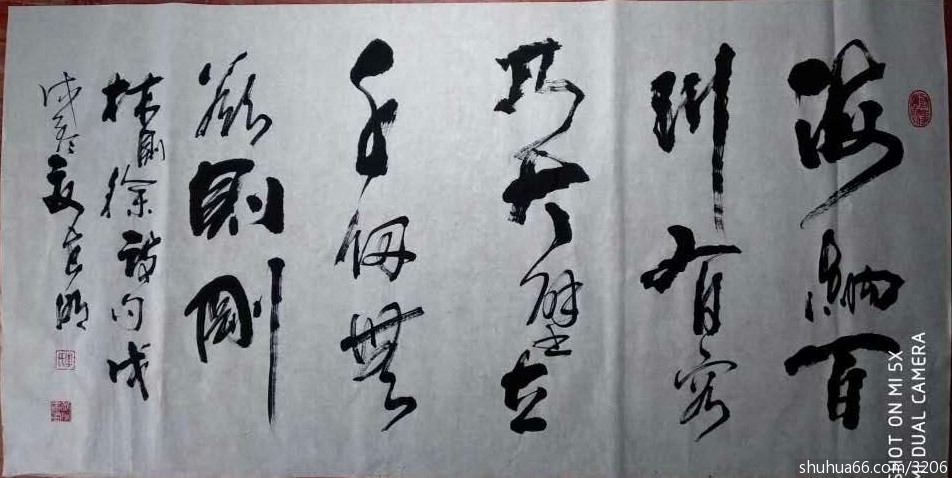 海納百
川有容
乃大壁立
千仞無
欲則剛
林則徐詩句戊
戌冬
SHOT ON MI 5X
MI DUAL CAMERA
shuhua66.com/3206